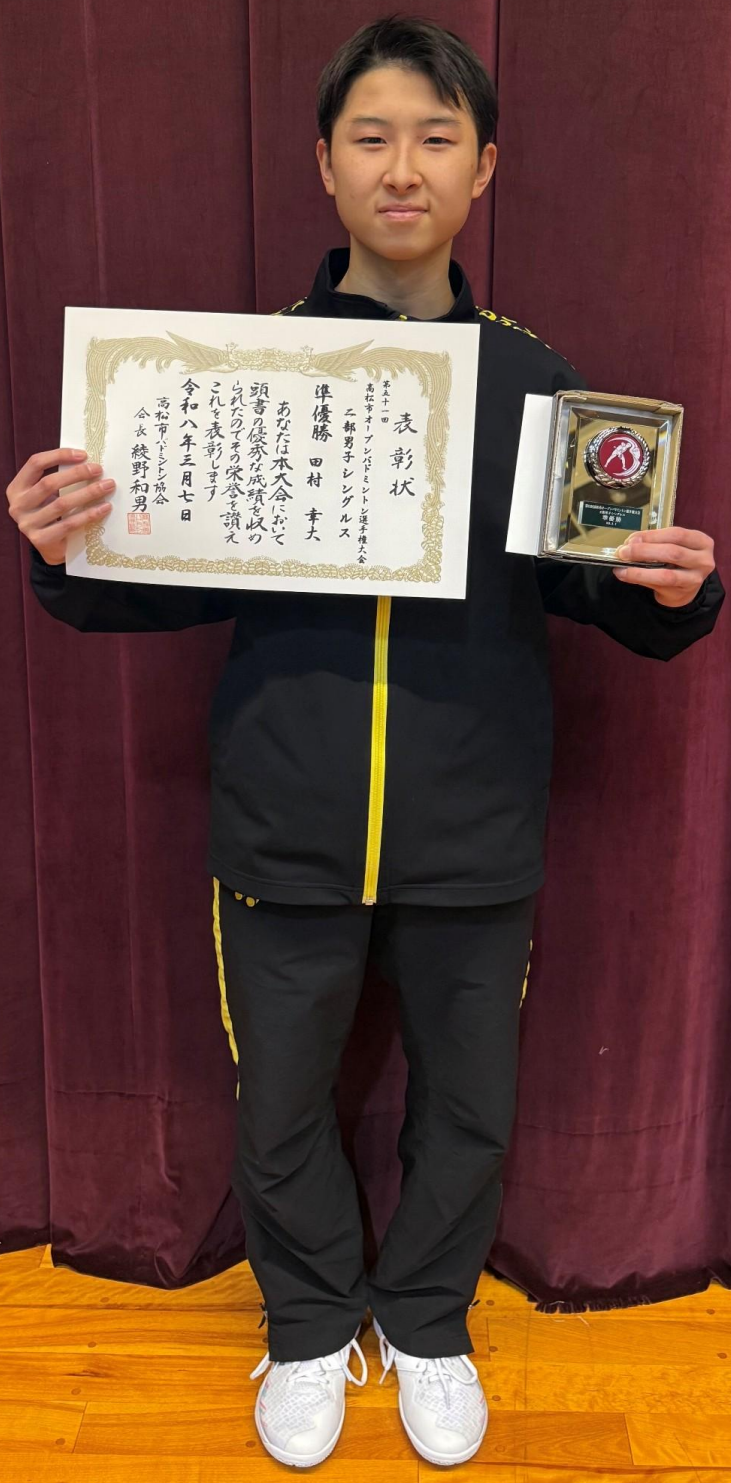 表彰状
第五十一回
高松市オープンバドミントン選手権大会
二部男子シングルス
準優勝 田村 幸大
あなたは本大会において
頭書の優秀な成績を収め
られたのでその栄誉を讃え
これを表彰します
令和八年三月七日
高松市バドミントン協会
会長 綾野和男
準優勝